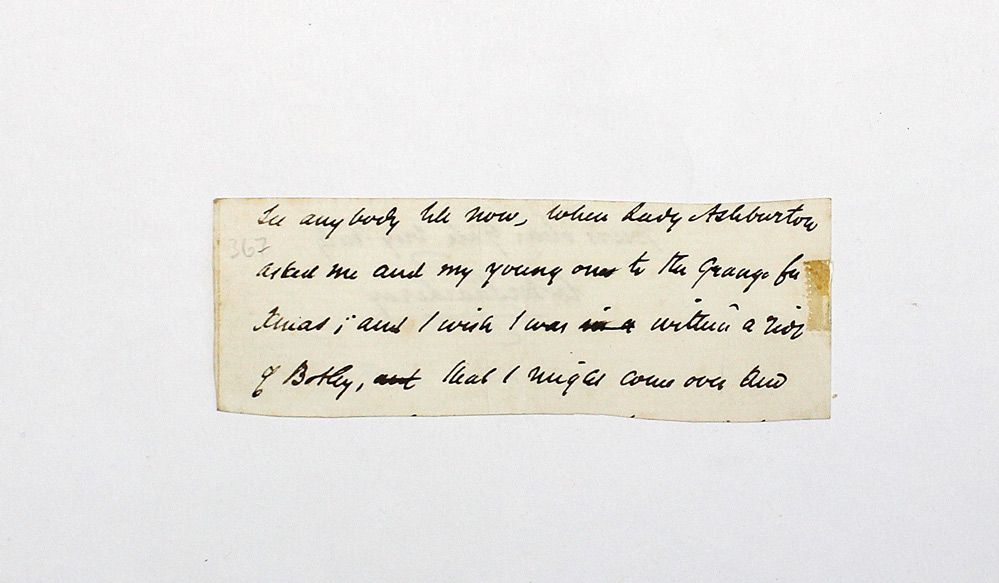 see anybody till now, when Lady Ashburton
367
asked me and my young ones to the Grange for
Xmas; and I wish I was in a within a ride
of Botley, and that I might come over and